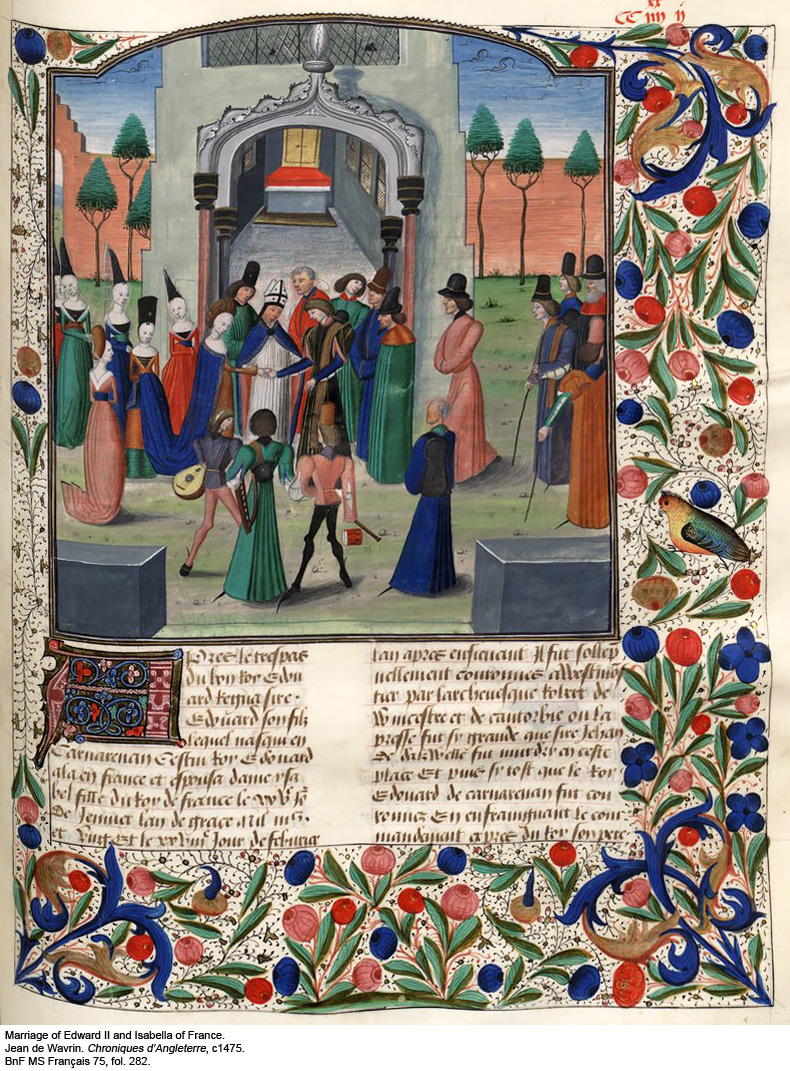 xx
CC iiii ii
Apres le trespas
du bon roy Edou
ard Regna sire
Edouard son filz
lequel nasqui en
Carnarenan Cestui roy Edouard
ala en france et espousa dame ysa
bel fille du roy de france le
De Jenuier lan de grace mil
et vingt Et le Jour de
lan apres ensieuant Il fut sollep
nellement couronnes a
tier par larchevesque Robert de
Wincestre et de cantorbie ou la
presse fut sy grande que sire Jehan
De fut murdry en ceste
place Et puis sy tost que le Roy
Edouard de carnarenan fut cou
ronnez en enfraingnant le com
mandement expres du Roy son pere
Marriage of Edward II and Isabella of France.
Jean de Wavrin. Chroniques d'Angleterre, c1475.
BnF MS Français 75, fol. 282.